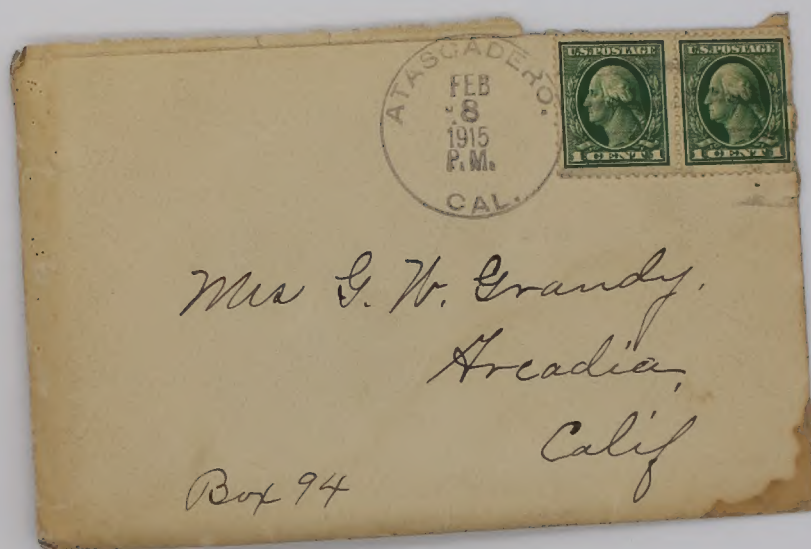 ATASCADERO.
FEB
8
1915
P.M.
CAL.
U.S.POSTAGE
1 CENT 1
U.S.POSTAGE
1 CENT 1
Mrs G. W. Grandy,
Arcadia,
Calif
Box 94